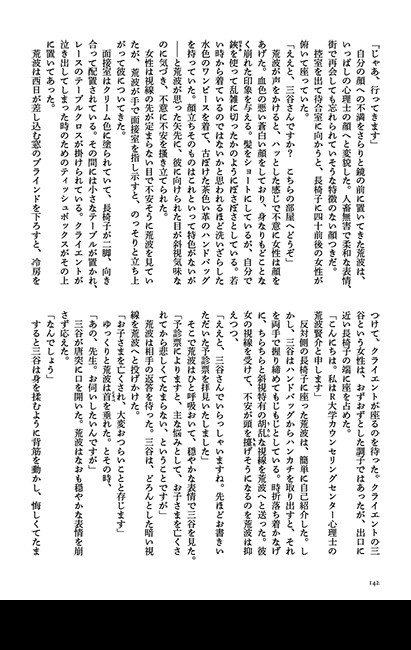 「じゃあ、行ってきます」
　自分の顔への不満をさらりと鏡の前に置いてきた荒波は、
いっぱしの心理士の顔へと変貌した。人畜無害で柔和な表情、
街で再会しても忘れられていそうな特徴のない顔つきだ。
　控室を出て待合室に向かうと、長椅子に四十前後の女性が
俯いて座っていた。
「ええと、三谷さんですか？　こちらの部屋へどうぞ」
　荒波が声をかけると、ハッとした感じで不意に女性は顔を
あげた。血色の悪い蒼白い顔をしており、身なりもどことな
く崩れた印象を与える。髪をショートにしているが、自分で
鋏を使って乱雑に切ったかのようにぼさぼさとしている。若
い時から着ているのではないかと思われるほど洗いざらした
水色のワンピースを着て、古ぼけた茶色い革のハンドバッグ
を持っていた。顔立ちそのものはこれといって特色がないが
――と荒波が思った矢先に、彼に向けられた目が斜視気味な
のに気づき、不意に不安を掻き立てられた。
　女性は視線の先が定まらない目で不安そうに荒波を見てい
たが、荒波が手で面接室を指し示すと、のっそりと立ち上
がって彼についてきた。
　面接室はクリーム色に塗られていて、長椅子が二脚、向き
合って配置されている。その間には小さなテーブルが置かれ、
レースのテーブルクロスが掛けられている。クライエントが
泣き出してしまった時のためのティッシュボックスがその上
に置いてあった。
　荒波は西日が差し込む窓のブラインドを下ろすと、冷房を
つけて、クライエントが座るのを待った。クライエントの三
谷という女性は、おずおずとした調子ではあったが、出口に
近い長椅子の端に座を占めた。
「こんにちは。私はR大学カウンセリングセンター心理士の
荒波賢介と申します」
　反対側の長椅子に座った荒波は、簡単に自己紹介した。し
かし、三谷はハンドバッグからハンカチを取り出すと、それ
を両手で握り締めてもじもじとしている。時折落ち着かなげ
に、ちらちらと斜視特有の胡乱な視線を荒波へと送った。彼
女の視線を受けて、不安が頭を擡げそうになるのを荒波は抑
えつつ、
「ええと、三谷さんでいらっしゃいますね。先ほどお書きい
ただいた予診票を拝見いたしました」
　そこで荒波はひと呼吸おいて、穏やかな表情で三谷を見た。
「予診票によりますと、主な悩みとして、お子さまを亡くさ
れてから悲しくてたまらない、ということですが」
　荒波は相手の返答を待った。三谷は、どろんとした暗い視
線を荒波へと投げかけた。
「お子さまを亡くされ、大変おつらいことと存じます」
　ゆっくりと荒波は首を垂れた。とその時、
「あの、先生。お伺いしたいんですが」
　三谷が唐突に口を開いた。荒波はなおも穏やかな表情を崩
さず応えた。
「なんでしょう」
　すると三谷は身を揉むように背筋を動かし、悔しくてたま
142